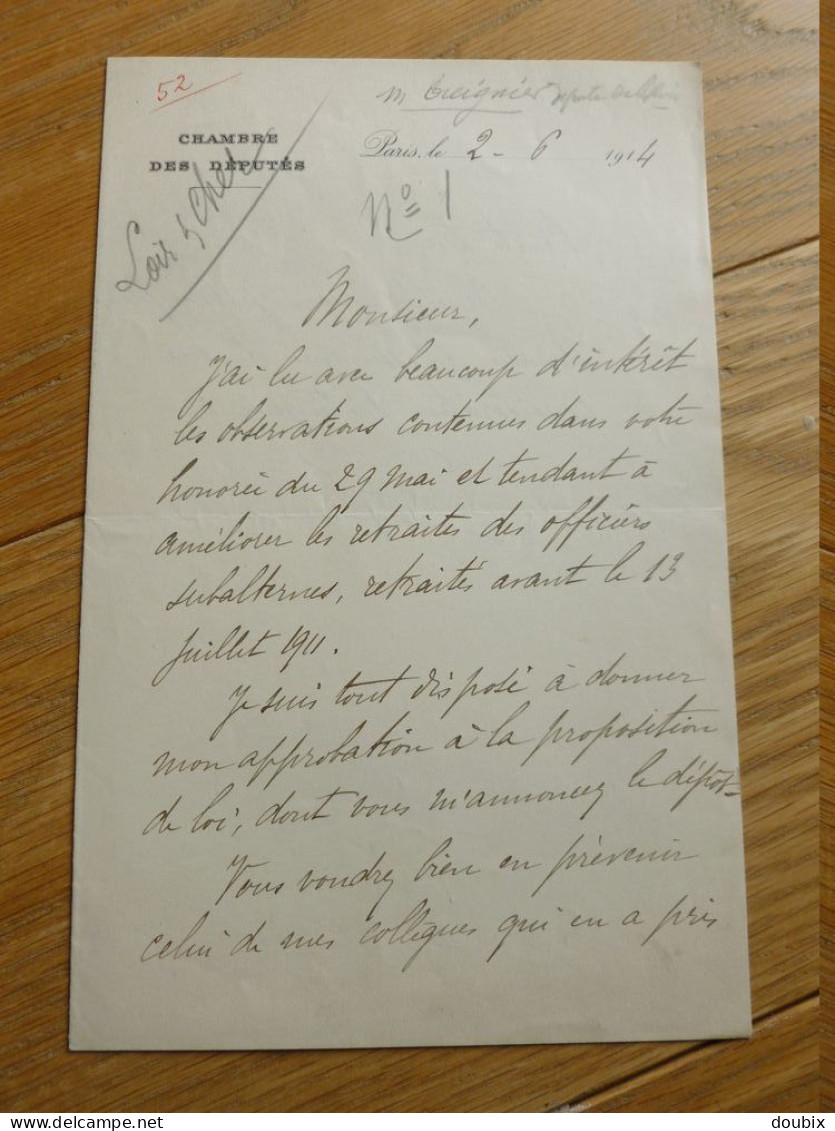 52
M Treignier député
CHAMBRE
DES DÉPUTÉS
Paris, le 2 - 6 1914
Loir & Cher
No 1
Monsieur,
J'ai lu avec beaucoup d'intérêt
les observations contenues dans votre
honorée du 29 mai et tendant à
améliorer les retraites des officiers
subalternes, retraités avant le 13
Juillet 1911.
Je suis tout disposé à donner
mon approbation à la proposition
de loi, dont vous m'annoncez le dépôt.
Vous voudrez bien en prévenir
celui de mes collègues qui en a pris
doubix